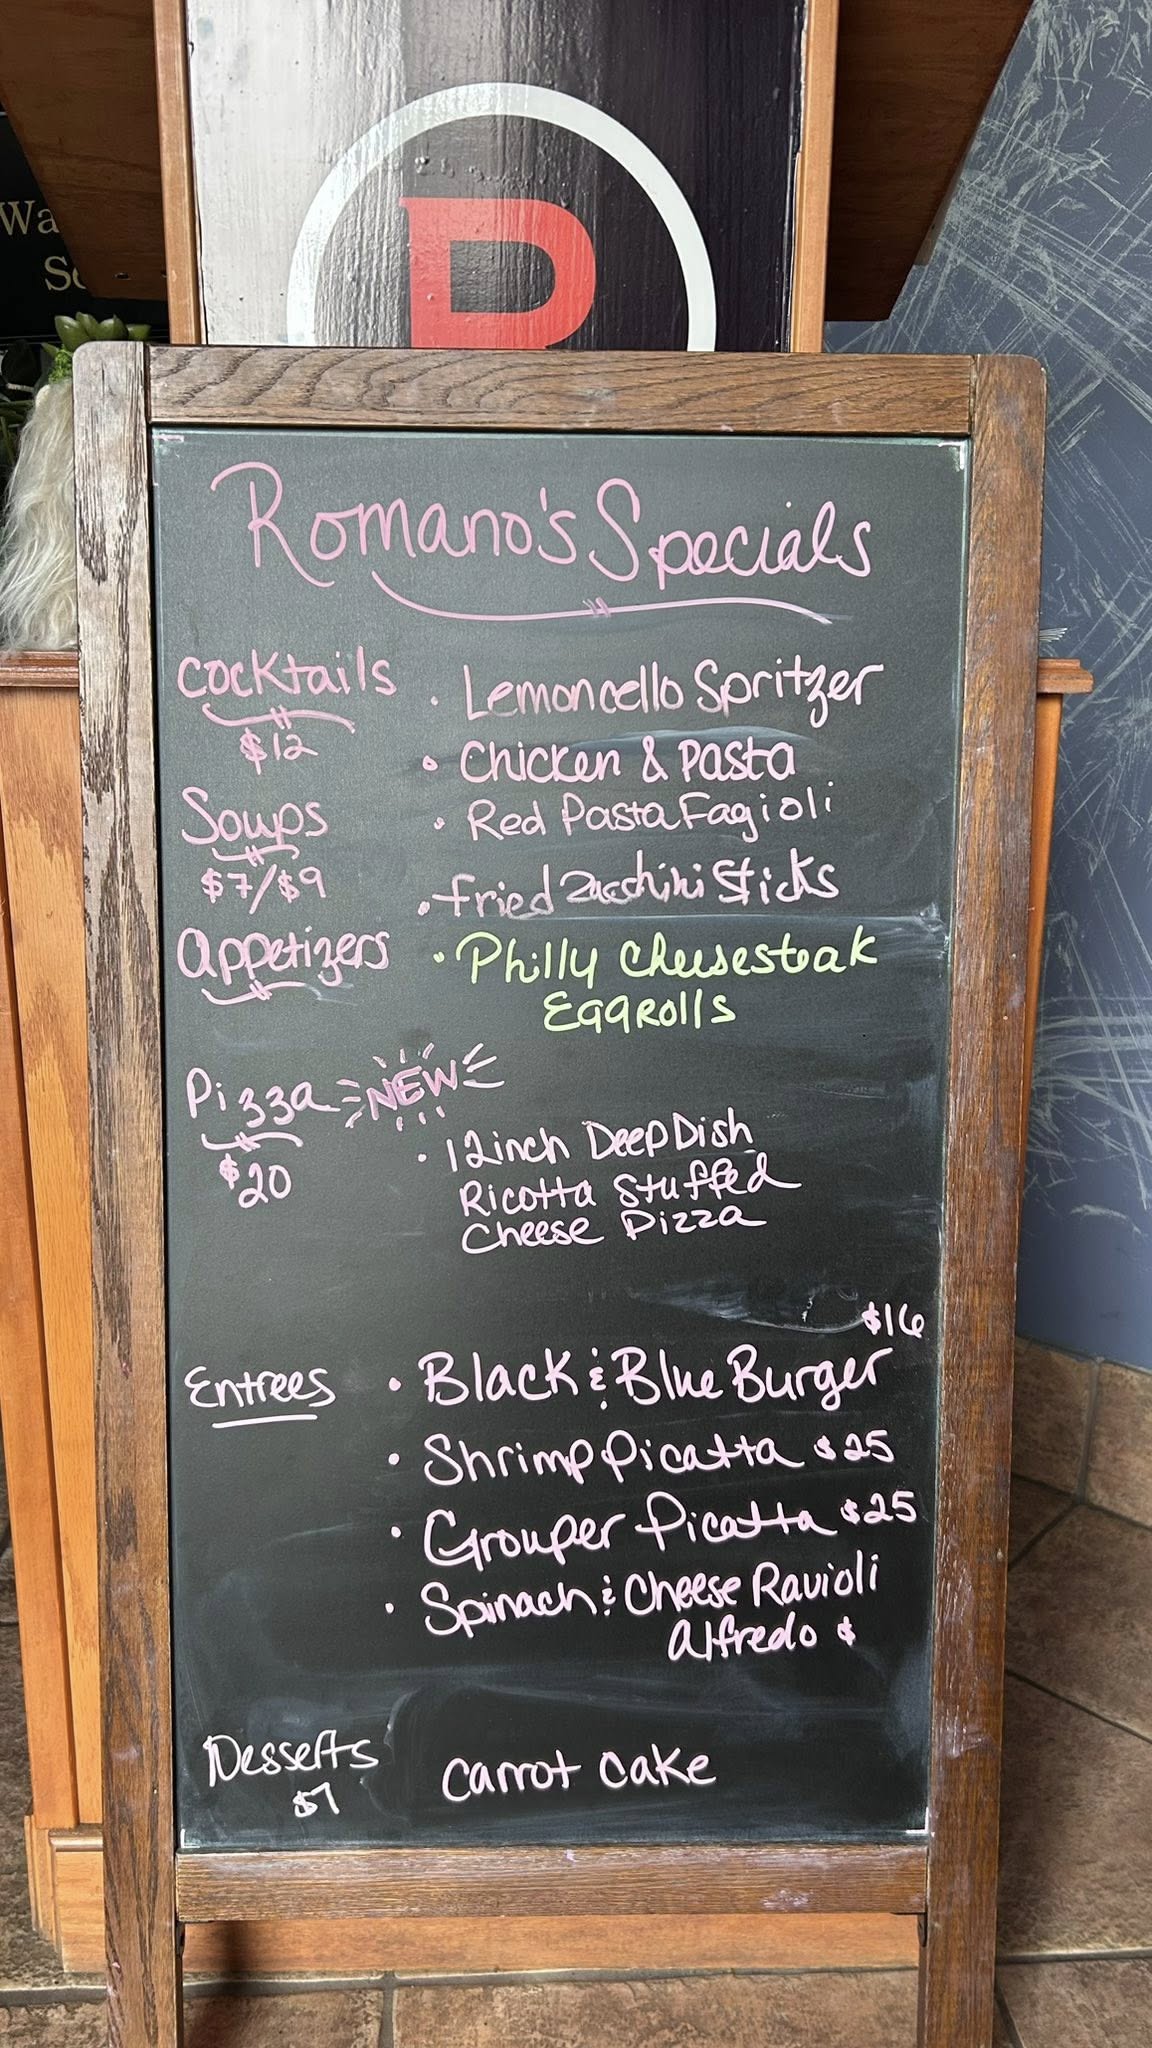 Wa
Se
R
Romano's Specials
Cocktails
$12
• Lemoncello Spritzer
• Chicken & Pasta
Soups
$7/$9
• Red Pasta Fagioli
• Fried Zucchini Sticks
Appetizers
• Philly Cheesesteak
EggRolls
Pizza NEW
$20
• 12inch Deep Dish
Ricotta Stuffed
Cheese Pizza
Entrees
$16
• Black & Blue Burger
• Shrimp Picatta $25
• Grouper Picatta $25
• Spinach & Cheese Ravioli
Alfredo $
Desserts
$7
Carrot Cake